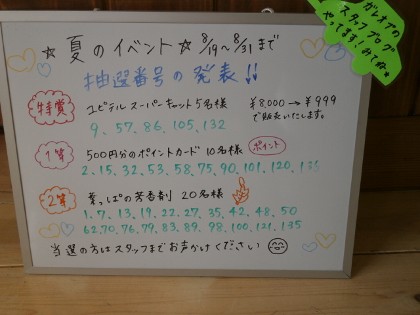 ☆夏のイベント☆ 8/19～8/31まで
抽選番号の発表!!
特賞 ユピテル スーパーキャット 5名様 ¥8,000→¥999
で販売いたします。
9、57、86、105、132
1等 500円分のポイントカード 10名様 ポイント
2、15、32、53、58、75、90、101、120、135
2等 葉っぱの芳香剤 20名様
1、7、13、19、22、27、35、42、48、50
62、70、76、79、83、89、98、100、121、135
当選の方はスタッフまでお声かけください
ガレオアの
スタッフブログ
やってます!みてね☆